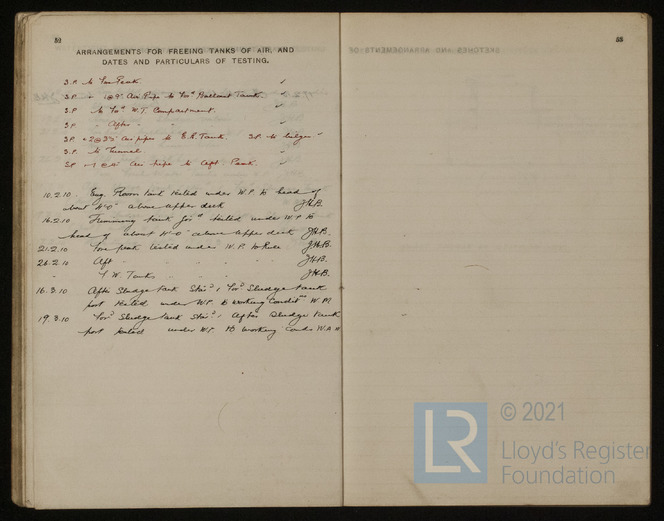 52
ARRANGEMENTS FOR FREEING TANKS OF AIR, AND
DATES AND PARTICULARS OF TESTING.
S.P. to Fore Peak ✓
S.P. " 1@9" Air Pipe to For^d Ballast Tank. ✓
S.P. to For^d W.T. Compartment. ✓
S.P. " After " " ✓
S.P. + 2@2½" air pipes to E.R. Tank. S.P. to bilges ✓
S.P. to Tunnel. ✓
S.P. - 1 @ Air pipe to Aft Peak. ✓
10.2.10. Eng. Room tank tested under W.P. to head of
about 4'0" above upper deck J.H.B.
16.2.10 tank for^d tested under W.P. to
head of about 4'0" above upper deck J.H.B.
21.2.10 Fore peak tested under W.P. to Rule J.H.B.
26.2.10 Aft " " " " " J.H.B.
" F.W. Tanks " " " J.H.B.
16.3.10 After Sludge tank Star^d, For^d Sludge tank
port tested under W.P. to working Condit^ns W.M.
19.3.10 For^d Sludge tank Star^d, After Sludge tank
port tested under W.P. to working Conds
53
SKETCHES AND ARRANGEMENTS OF
LR
© 2021
Lloyd's Register
Foundation